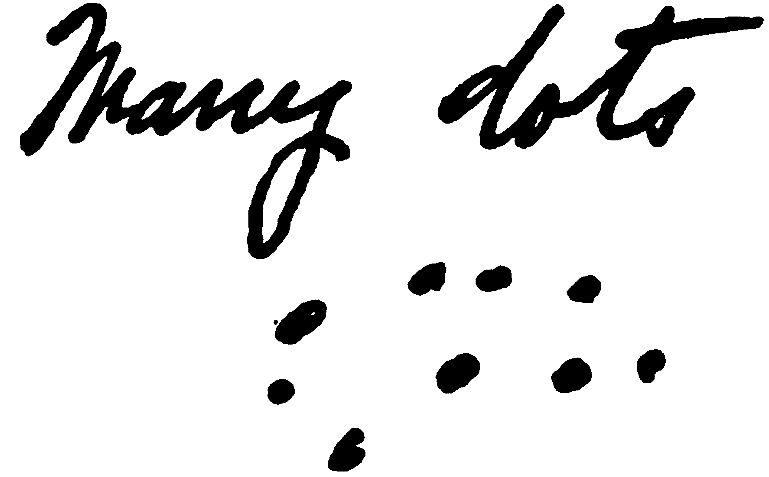 Many dots